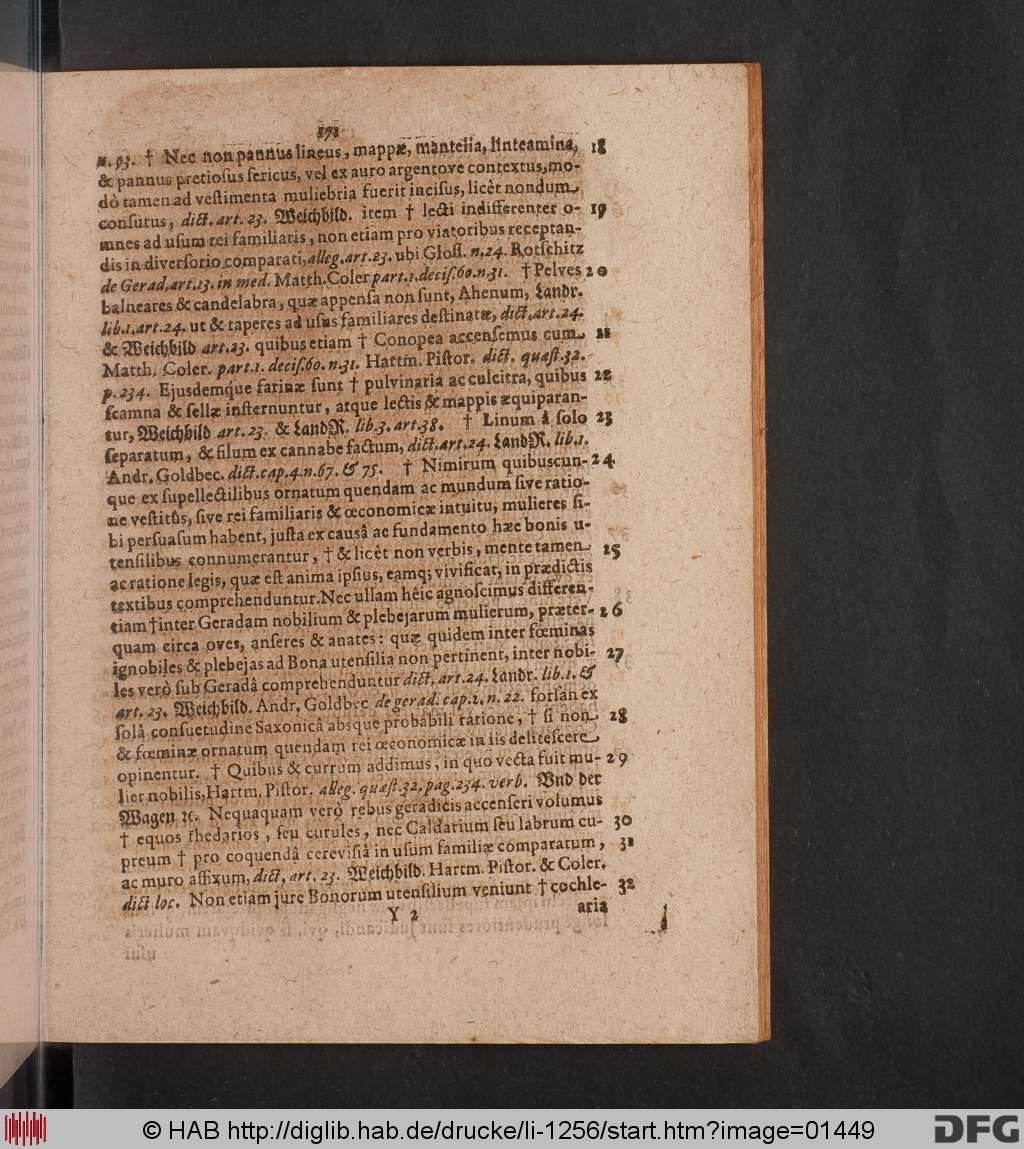 171
n. 93. † Nec non pannus lineus, mappæ, mantelia, linteamina, 18
& pannus pretiosus sericus, vel ex auro argentove contextus, mo-
dò tamen ad vestimenta muliebria fuerit incisus, licèt nondum
consutus, dict. art. 23. Weichbild. item † lecti indifferenter o- 19
mnes ad usum rei familiaris, non etiam pro viatoribus receptan-
dis in diversorio comparati, alleg. art. 23. ubi Gloss. n. 24. Rotschitz
de Gerad. art. 13. in med. Matth. Coler part. 1. decis. 60. n. 31. † Pelves 20
balneares & candelabra, quæ appensa non sunt, Ahenum, Landr.
lib. 1. art. 24. ut & tapetes ad usus familiares destinatæ, dict. art. 24.
& Weichbild art. 23. quibus etiam † Conopea accensemus cum 21
Matth. Coler. part. 1. decis. 60. n. 31. Hartm. Pistor. dict. quæst. 32.
p. 234. Ejusdemq́ue farinæ sunt † pulvinaria ac culcitra, quibus 22
scamna & sellæ insternuntur, atque lectis & mappis æquiparan-
tur, Weichbild art. 23. & LandR. lib. 3. art. 38. † Linum â solo 23
separatum, & filum ex cannabe factum, dict. art. 24. LandR. lib. 1.
Andr. Goldbec. dict. cap. 4. n. 67. & 75. † Nimirum quibuscun- 24
que ex supellectilibus ornatum quendam ac mundum sive ratio-
ne vestitûs, sive rei familiaris & œconomicæ intuitu, mulieres si-
bi persuasum habent, justa ex causâ ac fundamento hæc bonis u-
tensilibus connumerantur, † & licèt non verbis, mente tamen 25
ac ratione legis, quæ est anima ipsius, eamq; vivificat, in prædictis
textibus comprehenduntur. Nec ullam hêic agnoscimus differen-
tiam † inter Geradam nobilium & plebejarum mulierum, præter- 26
quam circa oves, anseres & anates: quæ quidem inter fœminas
ignobiles & plebejas ad Bona utensilia non pertinent, inter nobi- 27
les verò sub Geradâ comprehenduntur dict. art. 24. Landr. lib. 1. &
art. 23. Weichbild. Andr. Goldbec de gerad. cap. 2. n. 22. forsan ex
solâ consuetudine Saxonicâ absque probabili ratione, † si non 28
& fœminæ ornatum quendam rei œconomicæ in iis delitescere
opinentur. † Quibus & currum addimus, in quo vecta fuit mu- 29
lier nobilis, Hartm. Pistor. alleg. quæst. 32. pag. 234. verb. Und der
Wagen ꝛc. Nequaquam verò rebus geradicis accenseri volumus
† equos rhedarios, seu curules, nec Caldarium seu labrum cu- 30
preum † pro coquendâ cerevisiâ in usum familiæ comparatum, 31
ac muro affixum, dict. art. 23. Weichbild. Hartm. Pistor. & Coler.
dict. loc. Non etiam jure Bonorum utensilium veniunt † cochle- 32
Y 2 aria
© HAB http://diglib.hab.de/drucke/li-1256/start.htm?image=01449
DFG